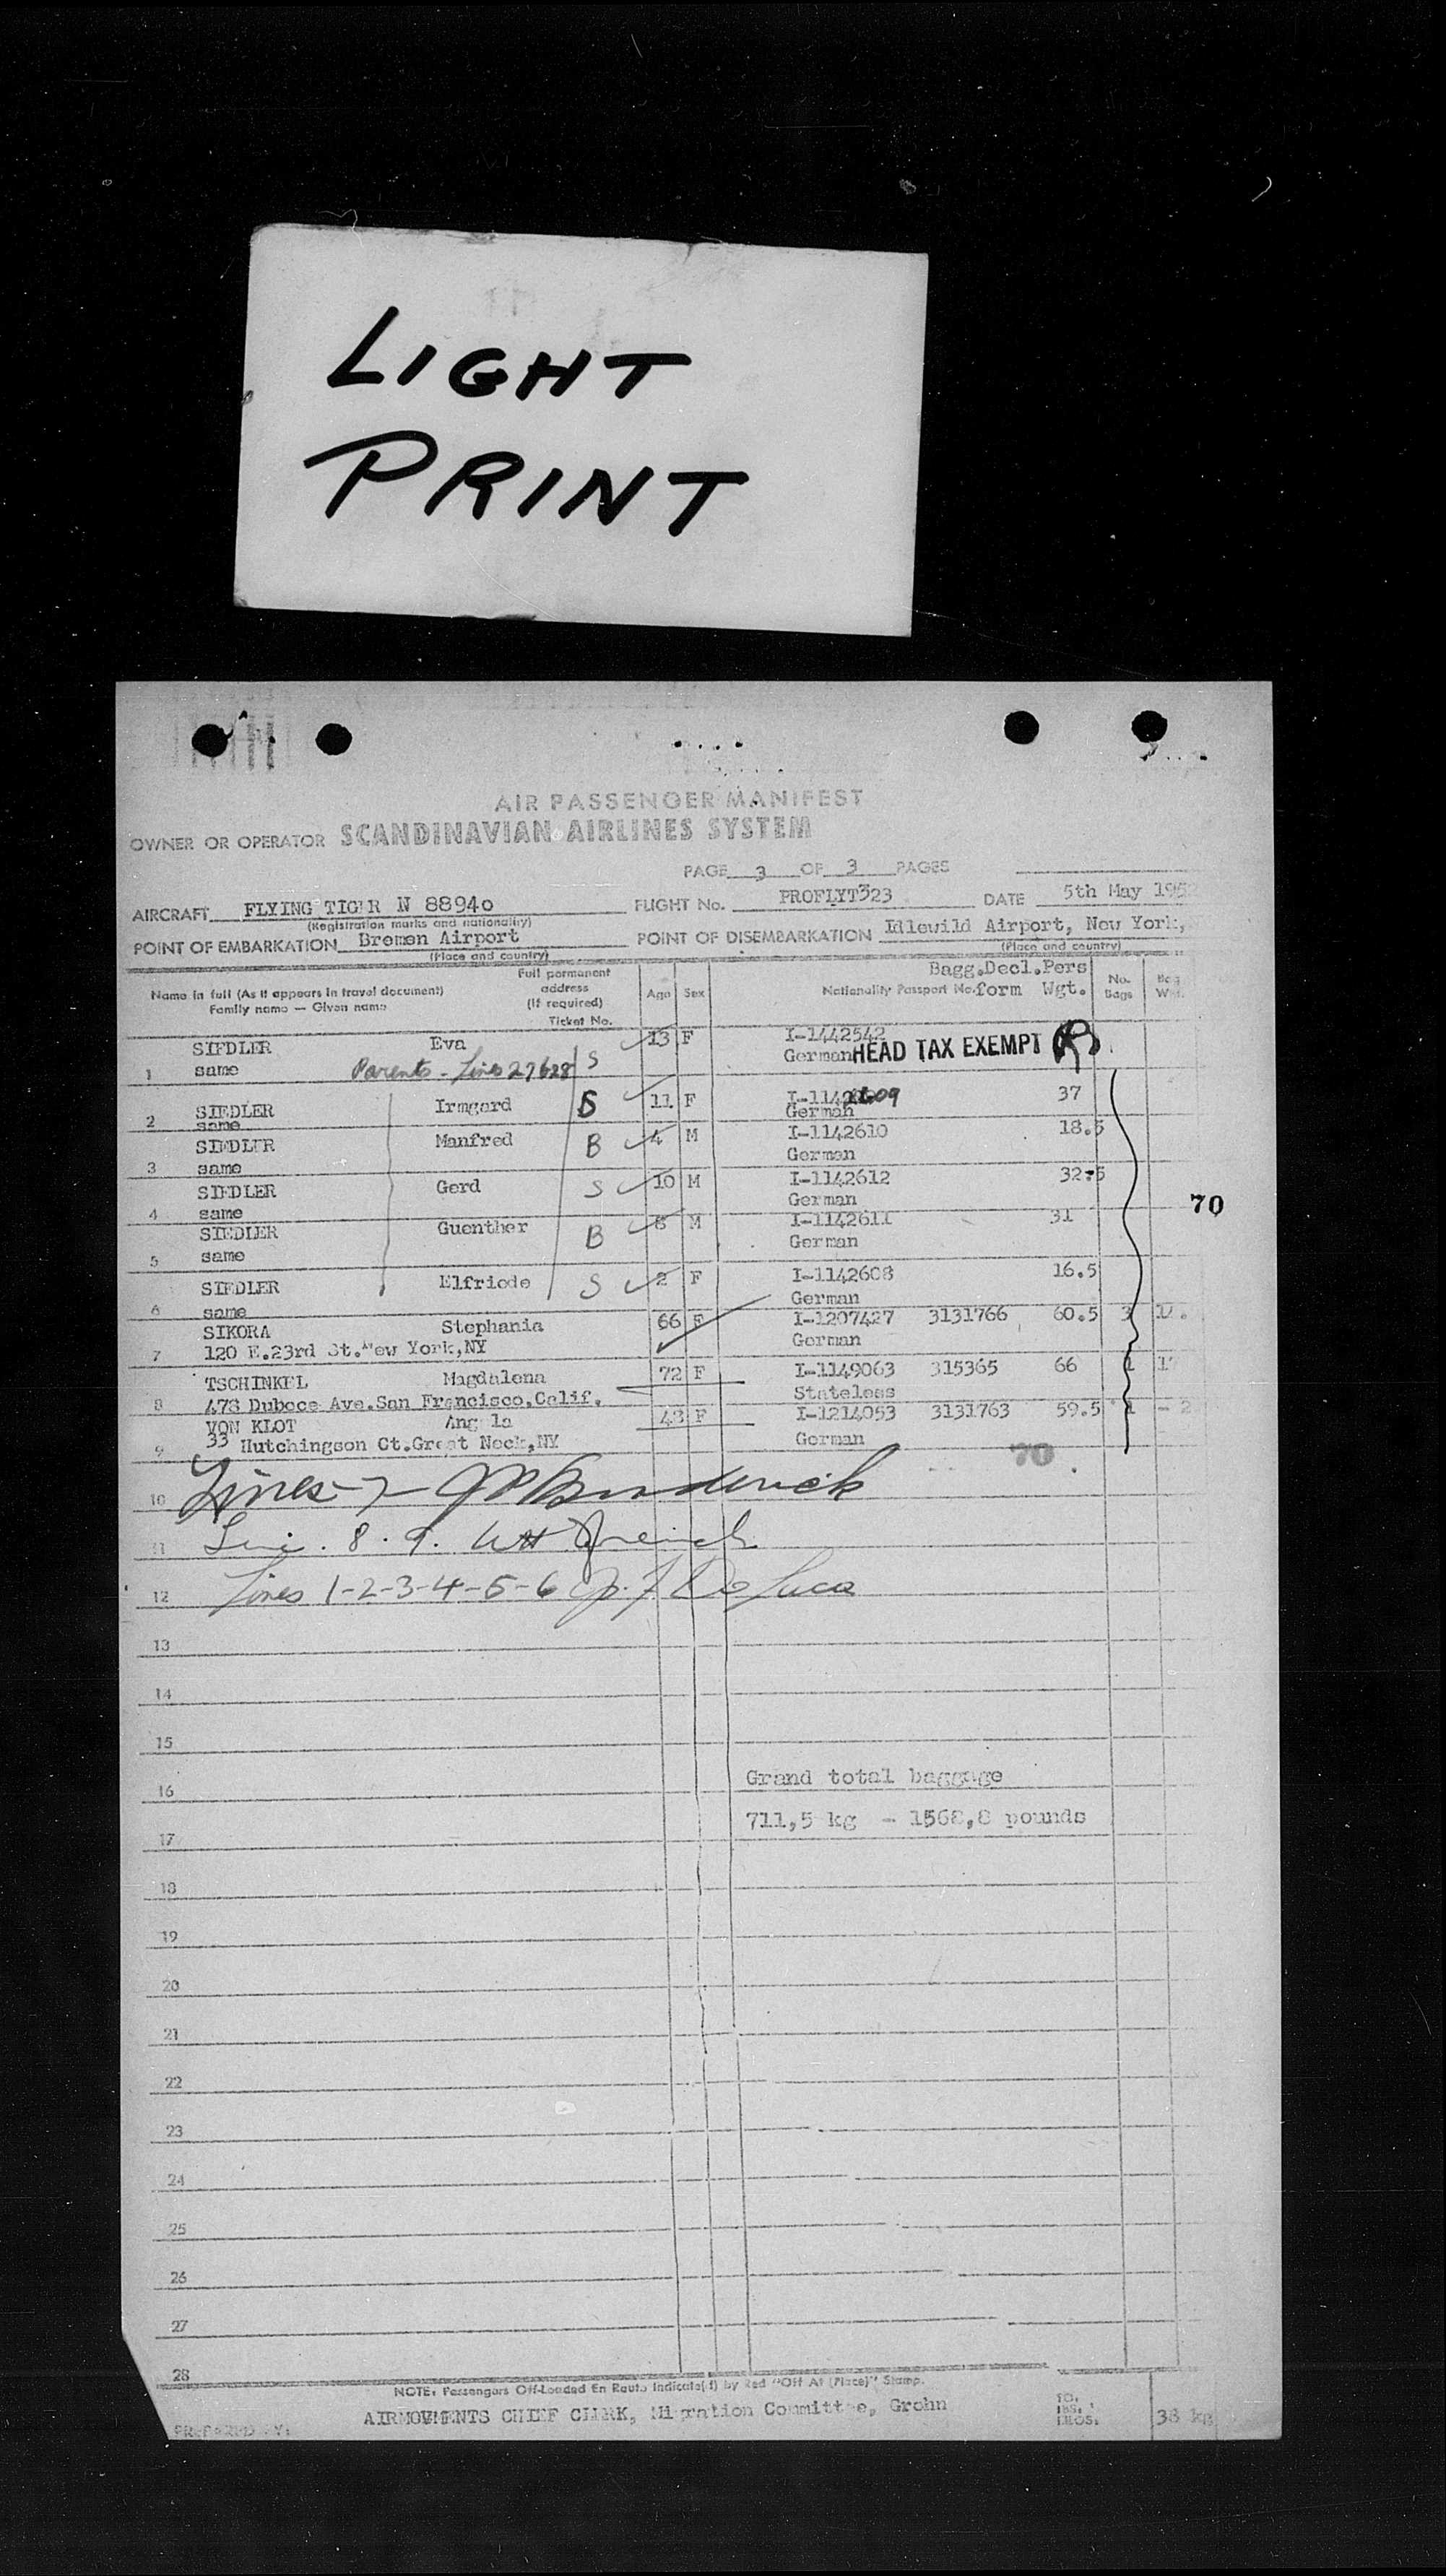 LIGHT
PRINT
AIR PASSENGER MANIFEST
OWNER OR OPERATOR SCANDINAVIAN AIRLINES SYSTEM
PAGE 3 OF 3 PAGES
AIRCRAFT FLYING TIGER N 88940 FLIGHT No. PROFLYT323 DATE 5th May 1952
(Registration marks and nationality)
POINT OF EMBARKATION Bremen Airport POINT OF DISEMBARKATION Idlewild Airport, New York,
(Place and country) (Place and country)
Name in full (As it appears in travel document) Full permanent address (If required) Age Sex Nationality Passport No. Bagg.Decl.Pers No. Bag
Family name — Given name Ticket No. form Wgt. Bags
SIEDLER Eva 13 F I-1442542
1 same Parents - Lines 27&28 S German HEAD TAX EXEMPT
SIEDLER Irmgard S 11 F I-1142609 37
2 same German
SIEDLER Manfred B 4 M I-1142610 18.5
3 same German
SIEDLER Gerd S 10 M I-1142612 32.5
4 same German 70
SIEDLER Guenther B 8 M I-1142611 31
5 same German
SIEDLER Elfriede S 2 F I-1142608 16.5
6 same German
SIKORA Stephania 66 F I-1207427 3131766 60.5 3
7 120 E.23rd St.New York,NY German
TSCHINKEL Magdalena 72 F I-1149063 315365 66 1
8 478 Duboce Ave.San Francisco,Calif. Stateless
VON KLOT Angela 48 F I-1214053 3131763 59.5 1
9 33 Hutchingson Ct.Great Neck,NY German 70
10 Lines 7
11 8 . 9.
12 Lines 1-2-3-4-5-6 De Luca
13
14
15
16 Grand total baggage
17 711,5 kg - 1568,8 pounds
18
19
20
21
22
23
24
25
26
27
28
NOTE: Passengers Off-Loaded En Route Indicate(d) by Red "Off At (Place)" Stamp.
PREPARED BY: AIRMOVEMENTS CHIEF CLERK, Migration Committee, Grohn KILOS. 38 kg